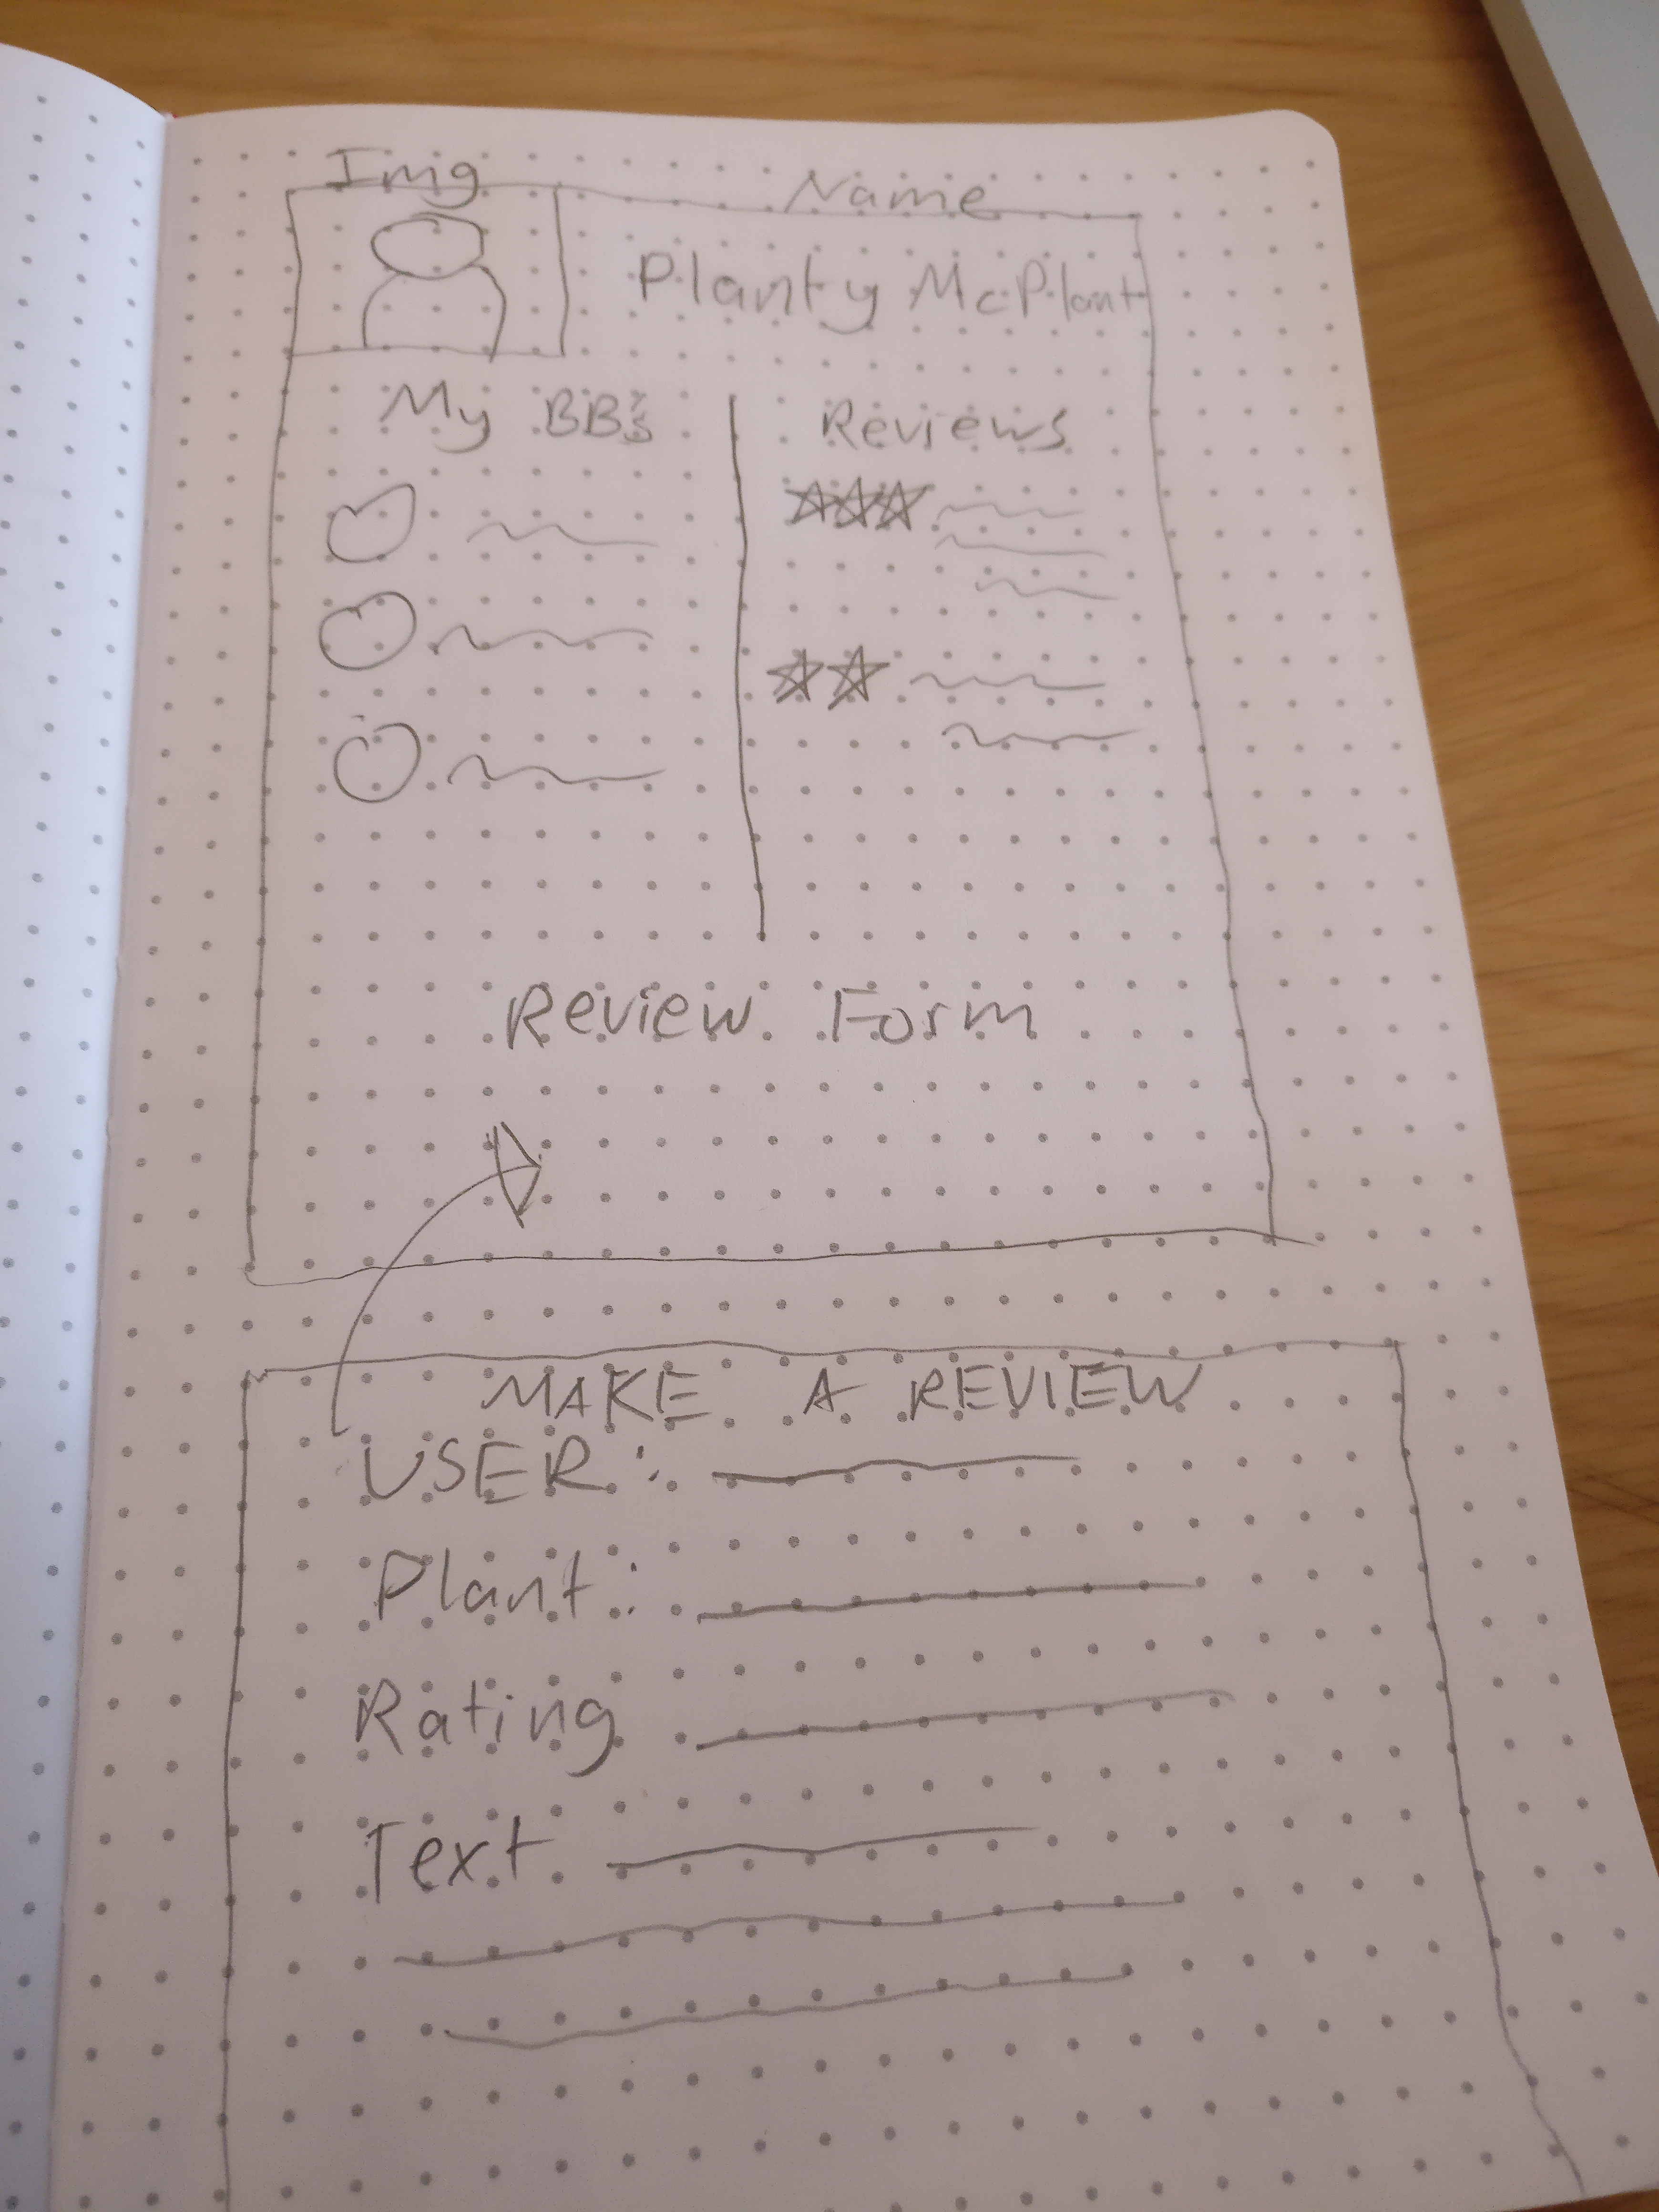 Img Name
Planty McPlant
My BB's Reviews
Review Form
MAKE A REVIEW
USER:
Plant:
Rating
Text